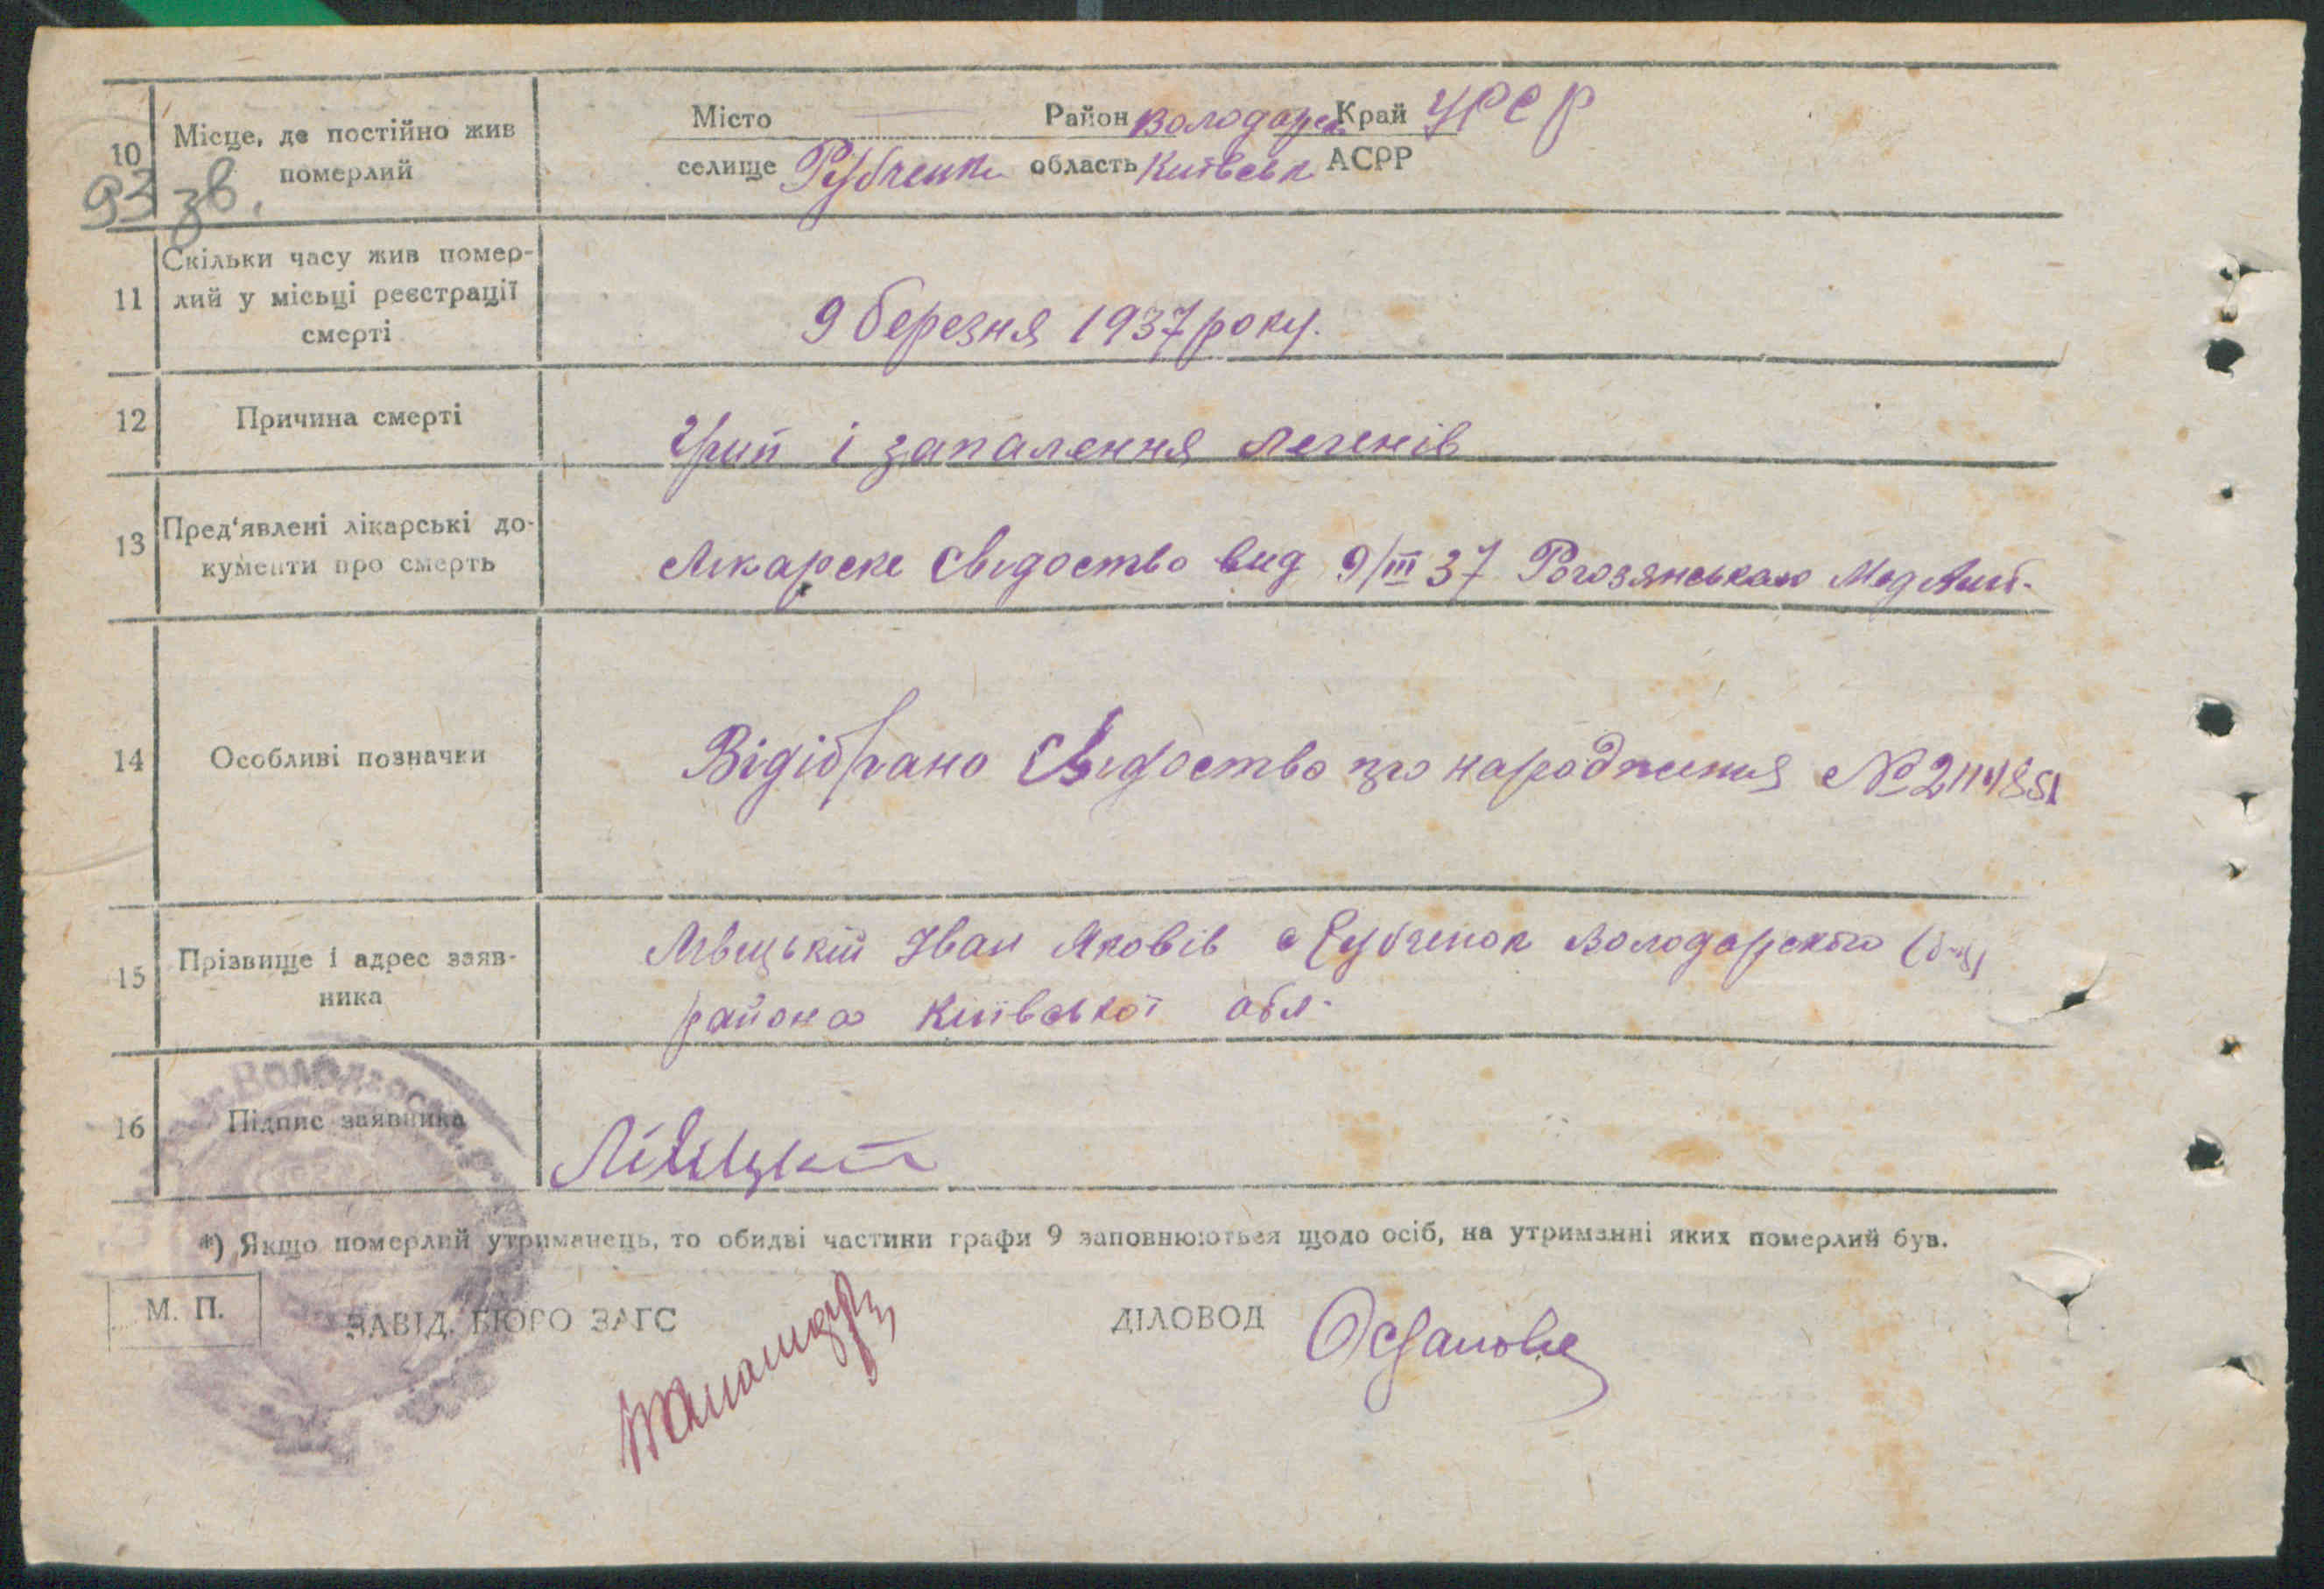 10 Місце, де постійно жив померлий
Місто Район Володарск Край УРСР
селище Рубченки область Київськ АСРР
93 зв.
11 Скільки часу жив помер-
лий у місьці реєстрації
смерті
9 березня 1937 року.
12 Причина смерті
Грип і запалення легенів
13 Пред'явлені лікарські до-
кументи про смерть
Лікарске свідоство вид 9/III 37 Рогозянською Мед
14 Особливі позначки
Відібрано Свідоство про народження №
15 Прізвище і адрес заяв-
ника
Лівицький Іван Яковів с Рубченок Володарского
района Київської обл.
16 Підпис заявника
Лівицкий
*) Якщо померлий утриманець, то обидві частини графи 9 заповнюються щодо осіб, на утриманні яких померлий був.
М. П.
ЗАВІД. БЮРО ЗАГС
ДІЛОВОД